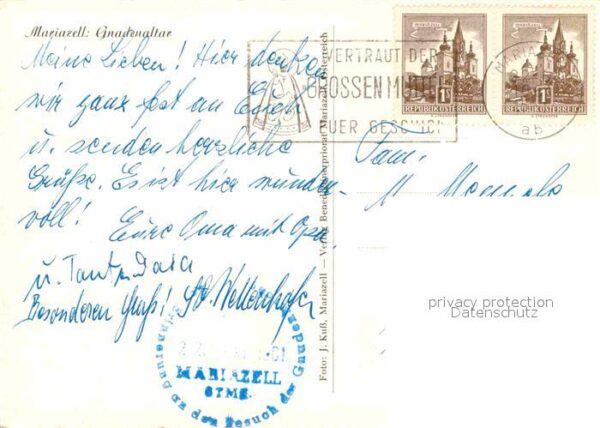 Mariazell: Gnadenaltar
Meine Lieben! Hier denken
wir ganz fest an Euch
u. senden herzliche
Grüße. Es ist hier wunder-
voll!
Eure Oma mit Opa
u. Tante
Besonderen Gruß!
Foto: J. Kuß, Mariazell — Verlag Benediktinerpriorat Mariazell, Österreich
VERTRAUT DER
GROSSEN MUTTER
EUER GESCHICK
MARIAZELL
1S
REPUBLIK ÖSTERREICH
MARIAZELL
1S
REPUBLIK ÖSTERREICH
Fam.
M
privacy protection
Datenschutz
Erinnerung an den Besuch der Gnaden
MARIAZELL
STMK.